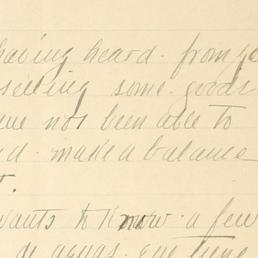 having heard from yo
selling some goods
ve not been able to
d make a balance
t.
wants to know a few